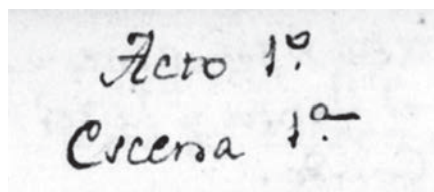 Acto 1º.
Escena 1ª.